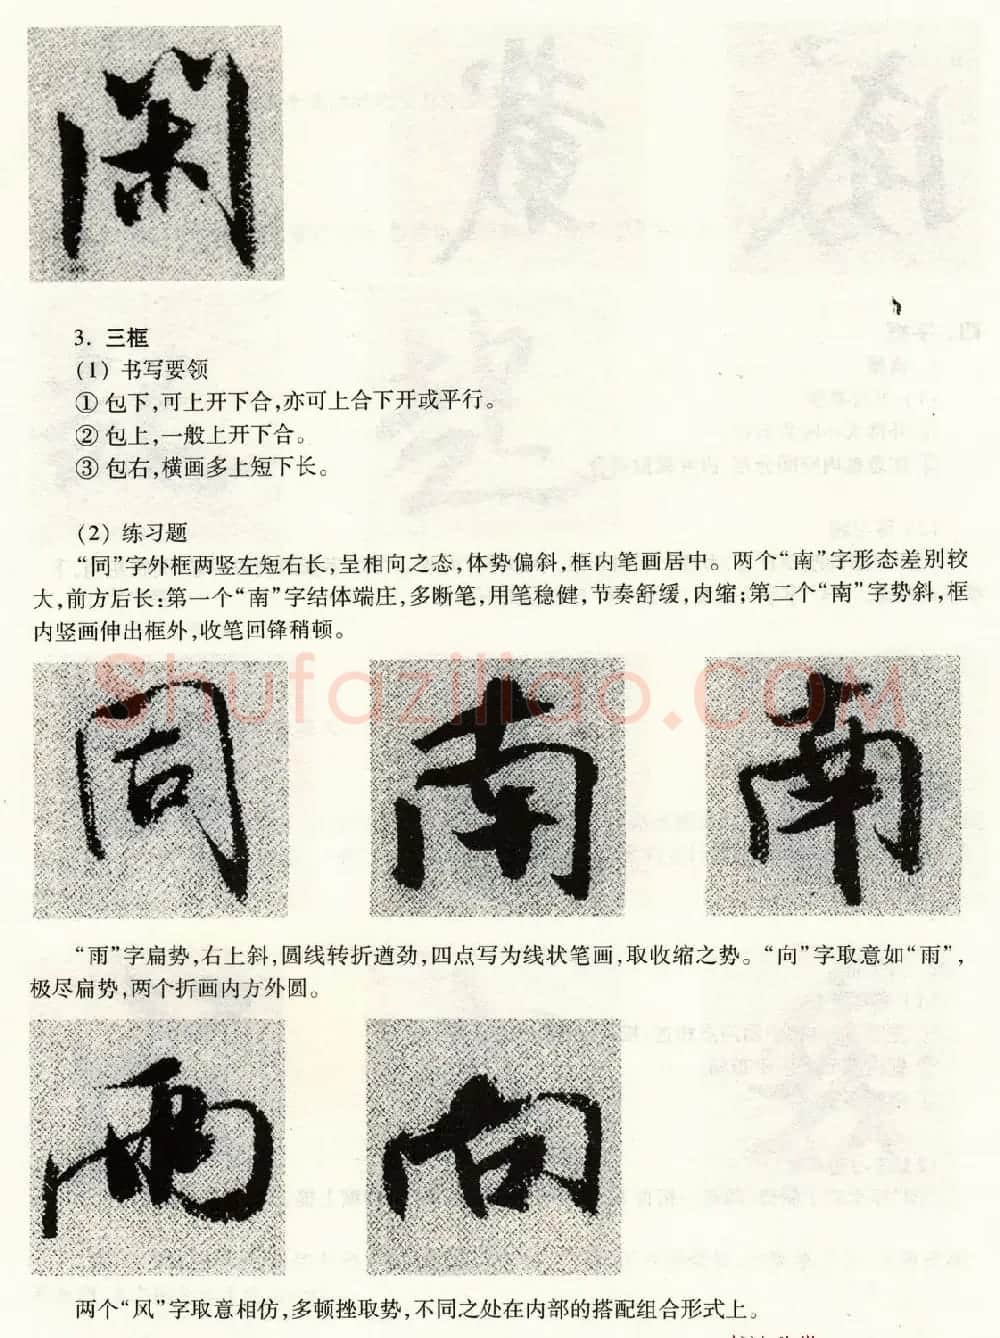 闲
3. 三框
(1) 书写要领
① 包下,可上开下合,亦可上合下开或平行。
② 包上,一般上开下合。
③ 包右,横画多上短下长。
(2) 练习题
“同”字外框两竖左短右长,呈相向之态,体势偏斜,框内笔画居中。两个“南”字形态差别较
大,前方后长:第一个“南”字结体端庄,多断笔,用笔稳健,节奏舒缓,内缩;第二个“南”字势斜,框
内竖画伸出框外,收笔回锋稍顿。
Shufaziliao.COM
同 南 南
“雨”字扁势,右上斜,圆线转折遒劲,四点写为线状笔画,取收缩之势。“向”字取意如“雨”,
极尽扁势,两个折画内方外圆。
雨 向
两个“风”字取意相仿,多顿挫取势,不同之处在内部的搭配组合形式上。